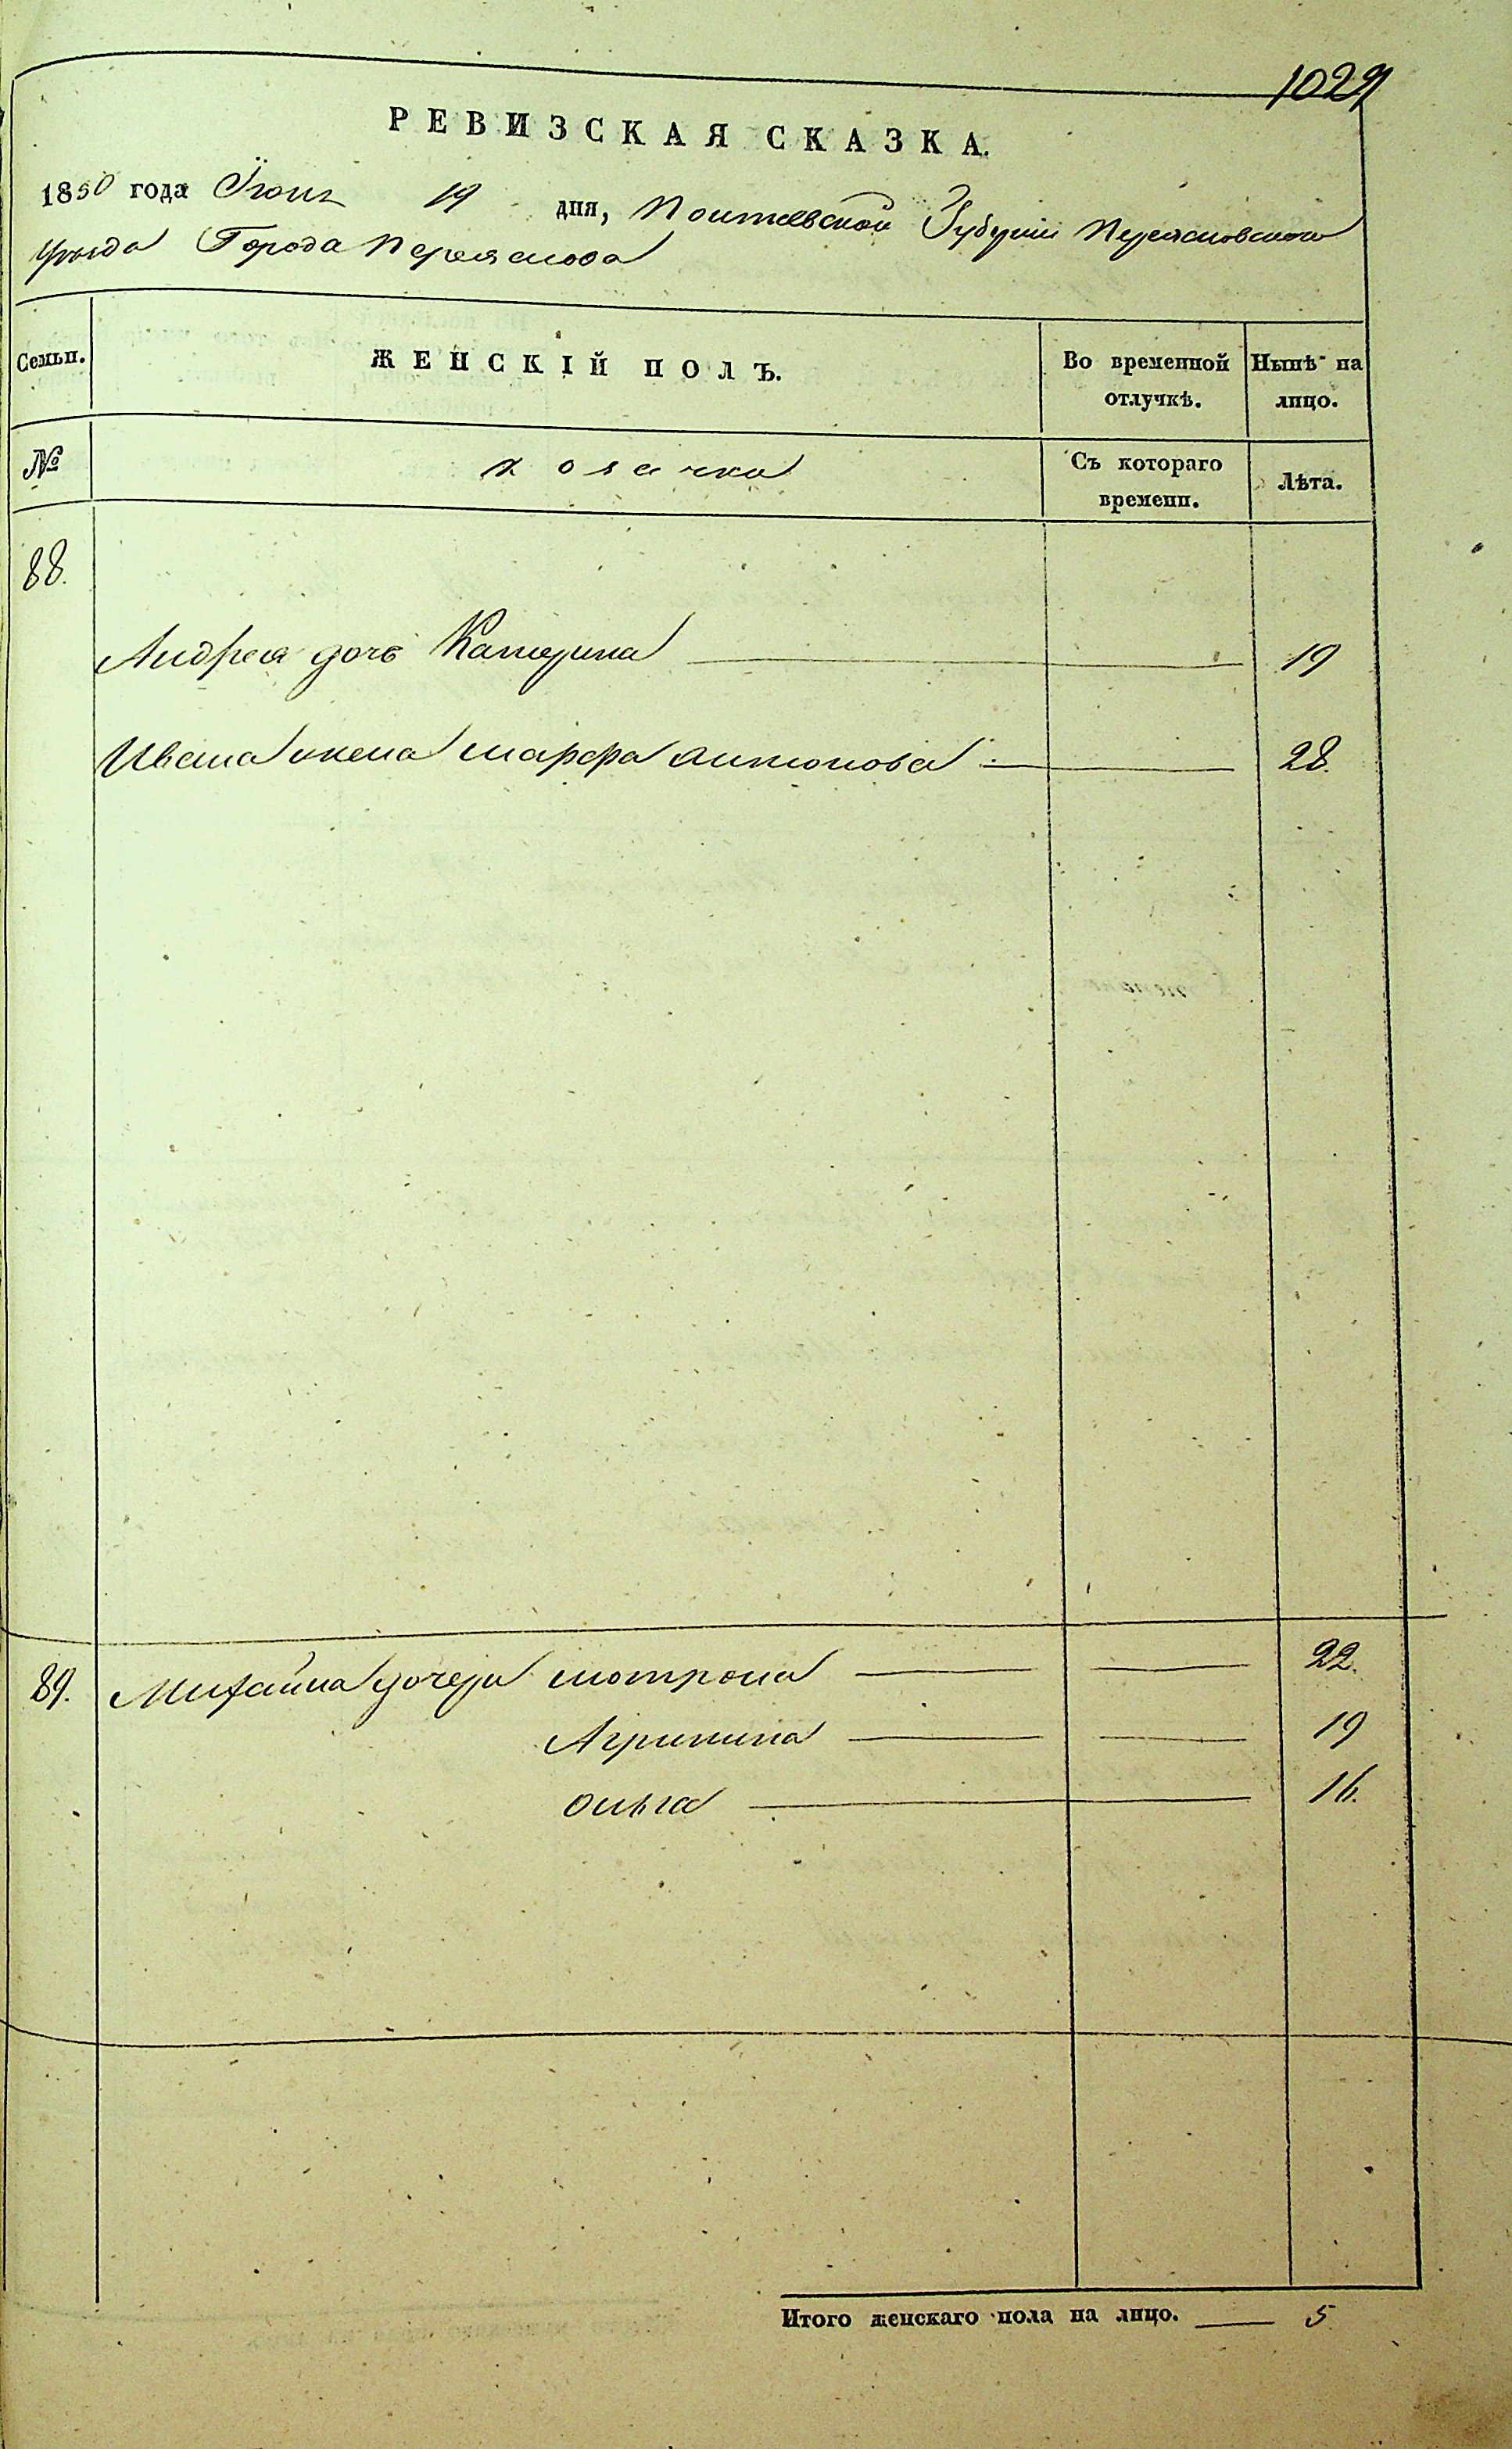 1029
РЕВИЗСКАЯ СКАЗКА.
1850 года Іюня 19 дня, Полтавской Губерніи Переясловского
уѣзда Города Переяслова
Семьи.
ЖЕНСКІЙ ПОЛЪ.
Во временной отлучкѣ.
Нынѣ на лицо.
№
козачки
Съ котораго времени.
Лѣта.
88.
Андрея дочь Катерина 19
Ивана жена марфа антонова 28.
89. Михайла дочери мотрона 22.
Агрипина 19
ольга 16.
Итого женскаго пола на лицо. 5